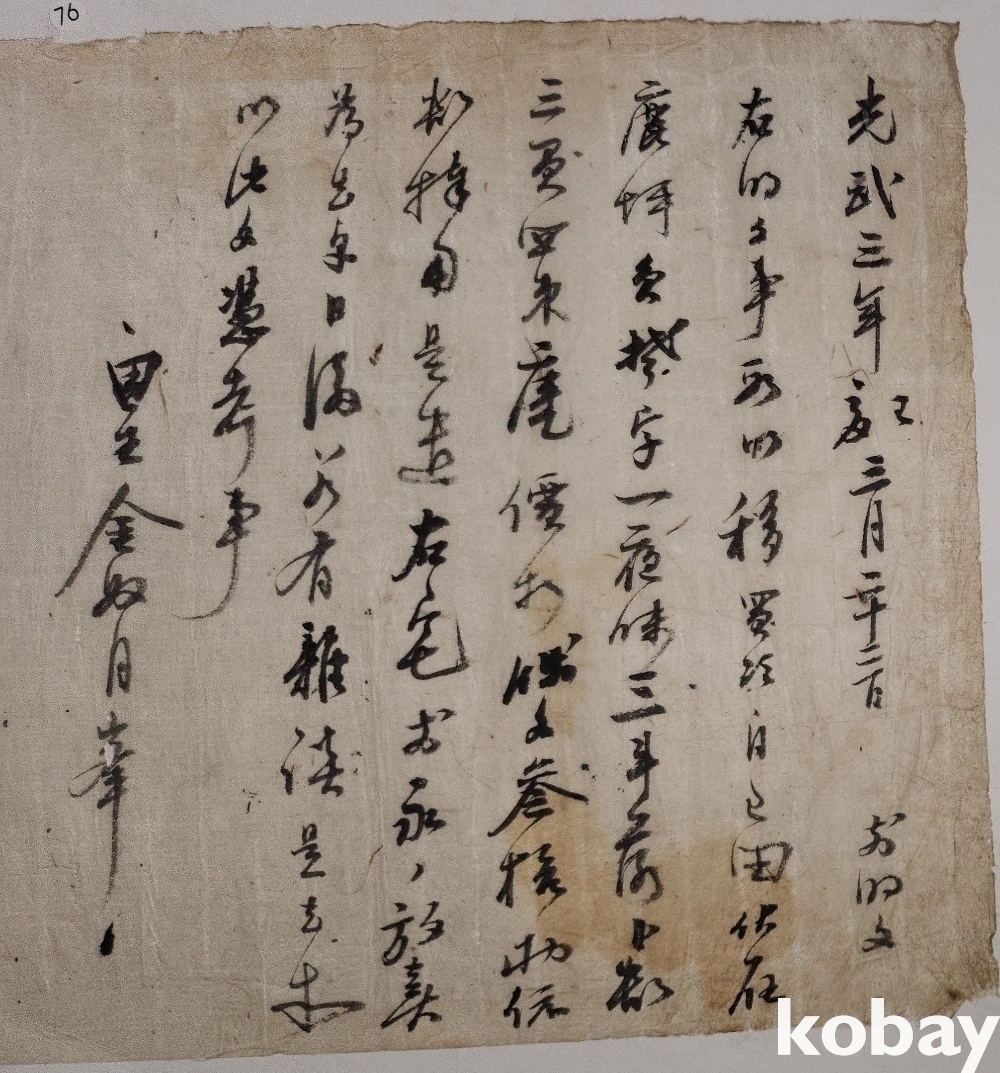 76
光武三年 己亥 三月二十二日 前明文
右明文事段以移買次自己田伏在
坪員字一夜味三斗落卜數
三負四束庫價折錢文參拾兩依
數捧用是遣右宅前永永放賣
爲去乎日後若有雜談是去等
以此文憑考事
田主 金奴月奉
kobay